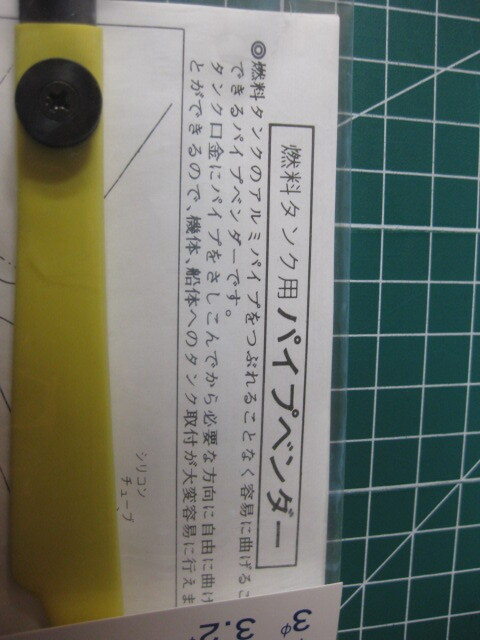 燃料タンク用パイプベンダー
◎燃料タンクのアルミパイプをつぶれることなく容易に曲げるこ
できるパイプベンダーです。
タンク口金にパイプをさしこんでから必要な方向に自由に曲げ
とができるので、機体、船体へのタンク取付が大変容易に行えま
シリコン
チューブ
3φ
3.2